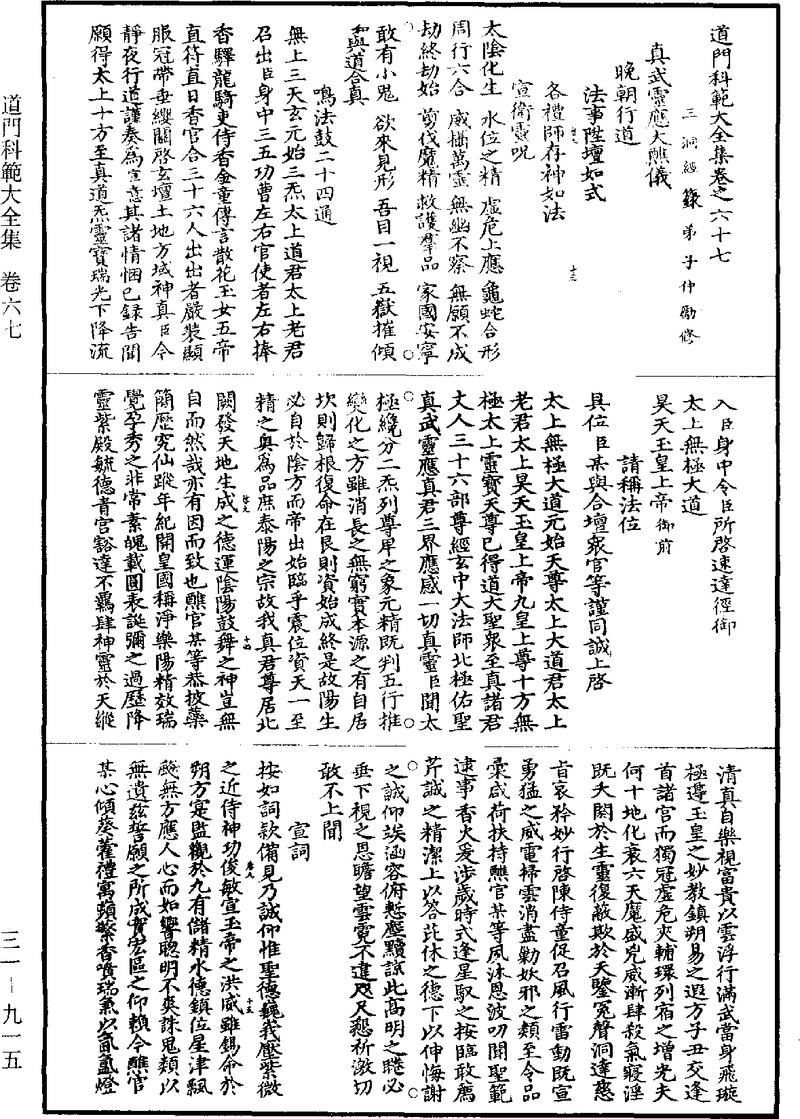 道門科範大全集卷之六十七
三洞經籙弟子仲勵修
真武靈應大醮儀
晚朝行道
法事陞壇如式
各禮師存神如法
宣衛靈呪
太陰化生 水位之精 虛危上應 龜蛇合形
周行六合 威攝萬靈 無幽不察 無願不成
劫終劫始 剪伐魔精 救護羣品 家國安寧
敢有小鬼 欲來見形 吾目一視 五嶽摧傾
與道合真
鳴法鼓二十四通
無上三天玄元始三炁太上道君太上老君
召出臣身中三五功曹左右官使者左右捧
香驛龍騎吏侍香金童傳言散花玉女五帝
直符直日香官合三十六人出出者嚴裝顯
服冠帶垂纓關啓玄壇土地方域神真臣今
靜夜行道謹奏為宣意其諸情悃已錄告聞
願得太上十方至真道炁靈寶瑞光下降流
入臣身中令臣所啓速達徑御
太上無極大道
昊天玉皇上帝御前
請稱法位
具位臣某與合壇衆官等謹同誠上啓
太上無極大道元始天尊太上大道君太上
老君太上昊天玉皇上帝九皇上尊十方無
極太上靈寶天尊已得道大聖衆至真諸君
丈人三十六部尊經玄中大法師北極佑聖
真武靈應真君三界應感一切真靈臣聞太
極纔分二炁列尊卑之象元精既判五行推
變化之方雖消長之無窮實本源之有自居
坎則歸根復命在艮則資始成終是故陽生
必自於陰方而帝出始臨乎震位資天一至
精之奧為品庶泰陽之宗故我真君尊居北
闕發天地生成之德運陰陽鼓舞之神豈無
自而然哉亦有因而致也醮官某等恭披藥
簡歷究仙蹤年紀開皇國稱淨樂陽精效瑞
覺孕秀之非常素魄載圓表誕彌之過歷降
靈紫殿毓德青宮豁達不羈肆神靈於天縱
清真自樂視富貴以雲浮行滿武當身飛璇
極遵玉皇之妙教鎮朔易之遐方子丑交逢
首諸宮而獨冠虛危夾輔環列宿之增光夫
何十地化衰六天魔盛兇威漸肆殺氣寖淫
既夭閼於生靈復蔽欺於天鑒冤聲洞達慈
旨哀矜妙行啓陳侍童促召風行雷動既宣
勇猛之威電掃雲消盡勦妖邪之類至令品
彙咸荷扶持醮官某等夙沐恩波叨聞聖範
逮事香火爰涉歲時式逢星馭之按臨敢薦
芹誠之精潔上以答茈休之德下以伸悔謝
之誠仰竢涵容俯慙塵黷諒此高明之睠必
垂下視之恩瞻望雲霓不違咫尺懇祈激切
敢不上聞
宣詞
按如詞款備見乃誠仰惟聖德巍峩壓紫微
之近侍神功俊敏宣玉帝之洪威雖錫命於
朔方寔監觀於九有儲精水德鎮位星津飄
颷無方應人心而如響聰明不爽誅鬼類以
無遺茲誓願之所成實宏區之仰賴今醮官
某心傾葵藿禮寓蘋蘩香噴瑞氣以氤氳燈
道門科範大全集 卷六七
三一-九一五